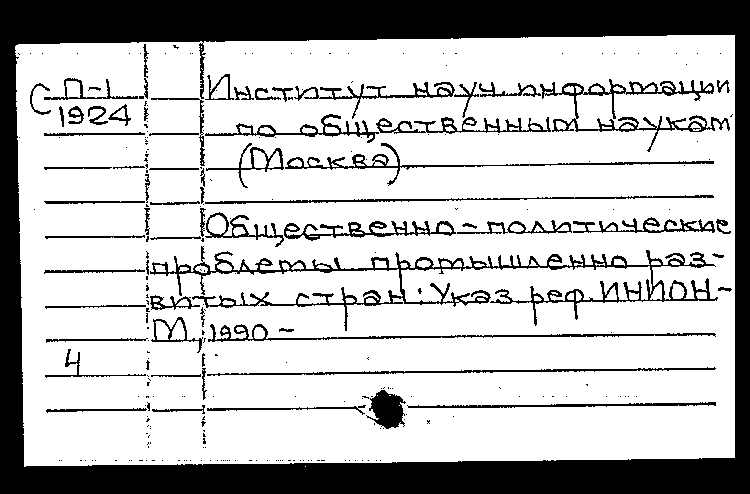 С П-1
1924
Институт науч. информации
по общественным наукам
(Москва)
Общественно-политические
проблемы промышленно раз-
витых стран: Указ. реф. ИНИОН-
М., 1990 -
4